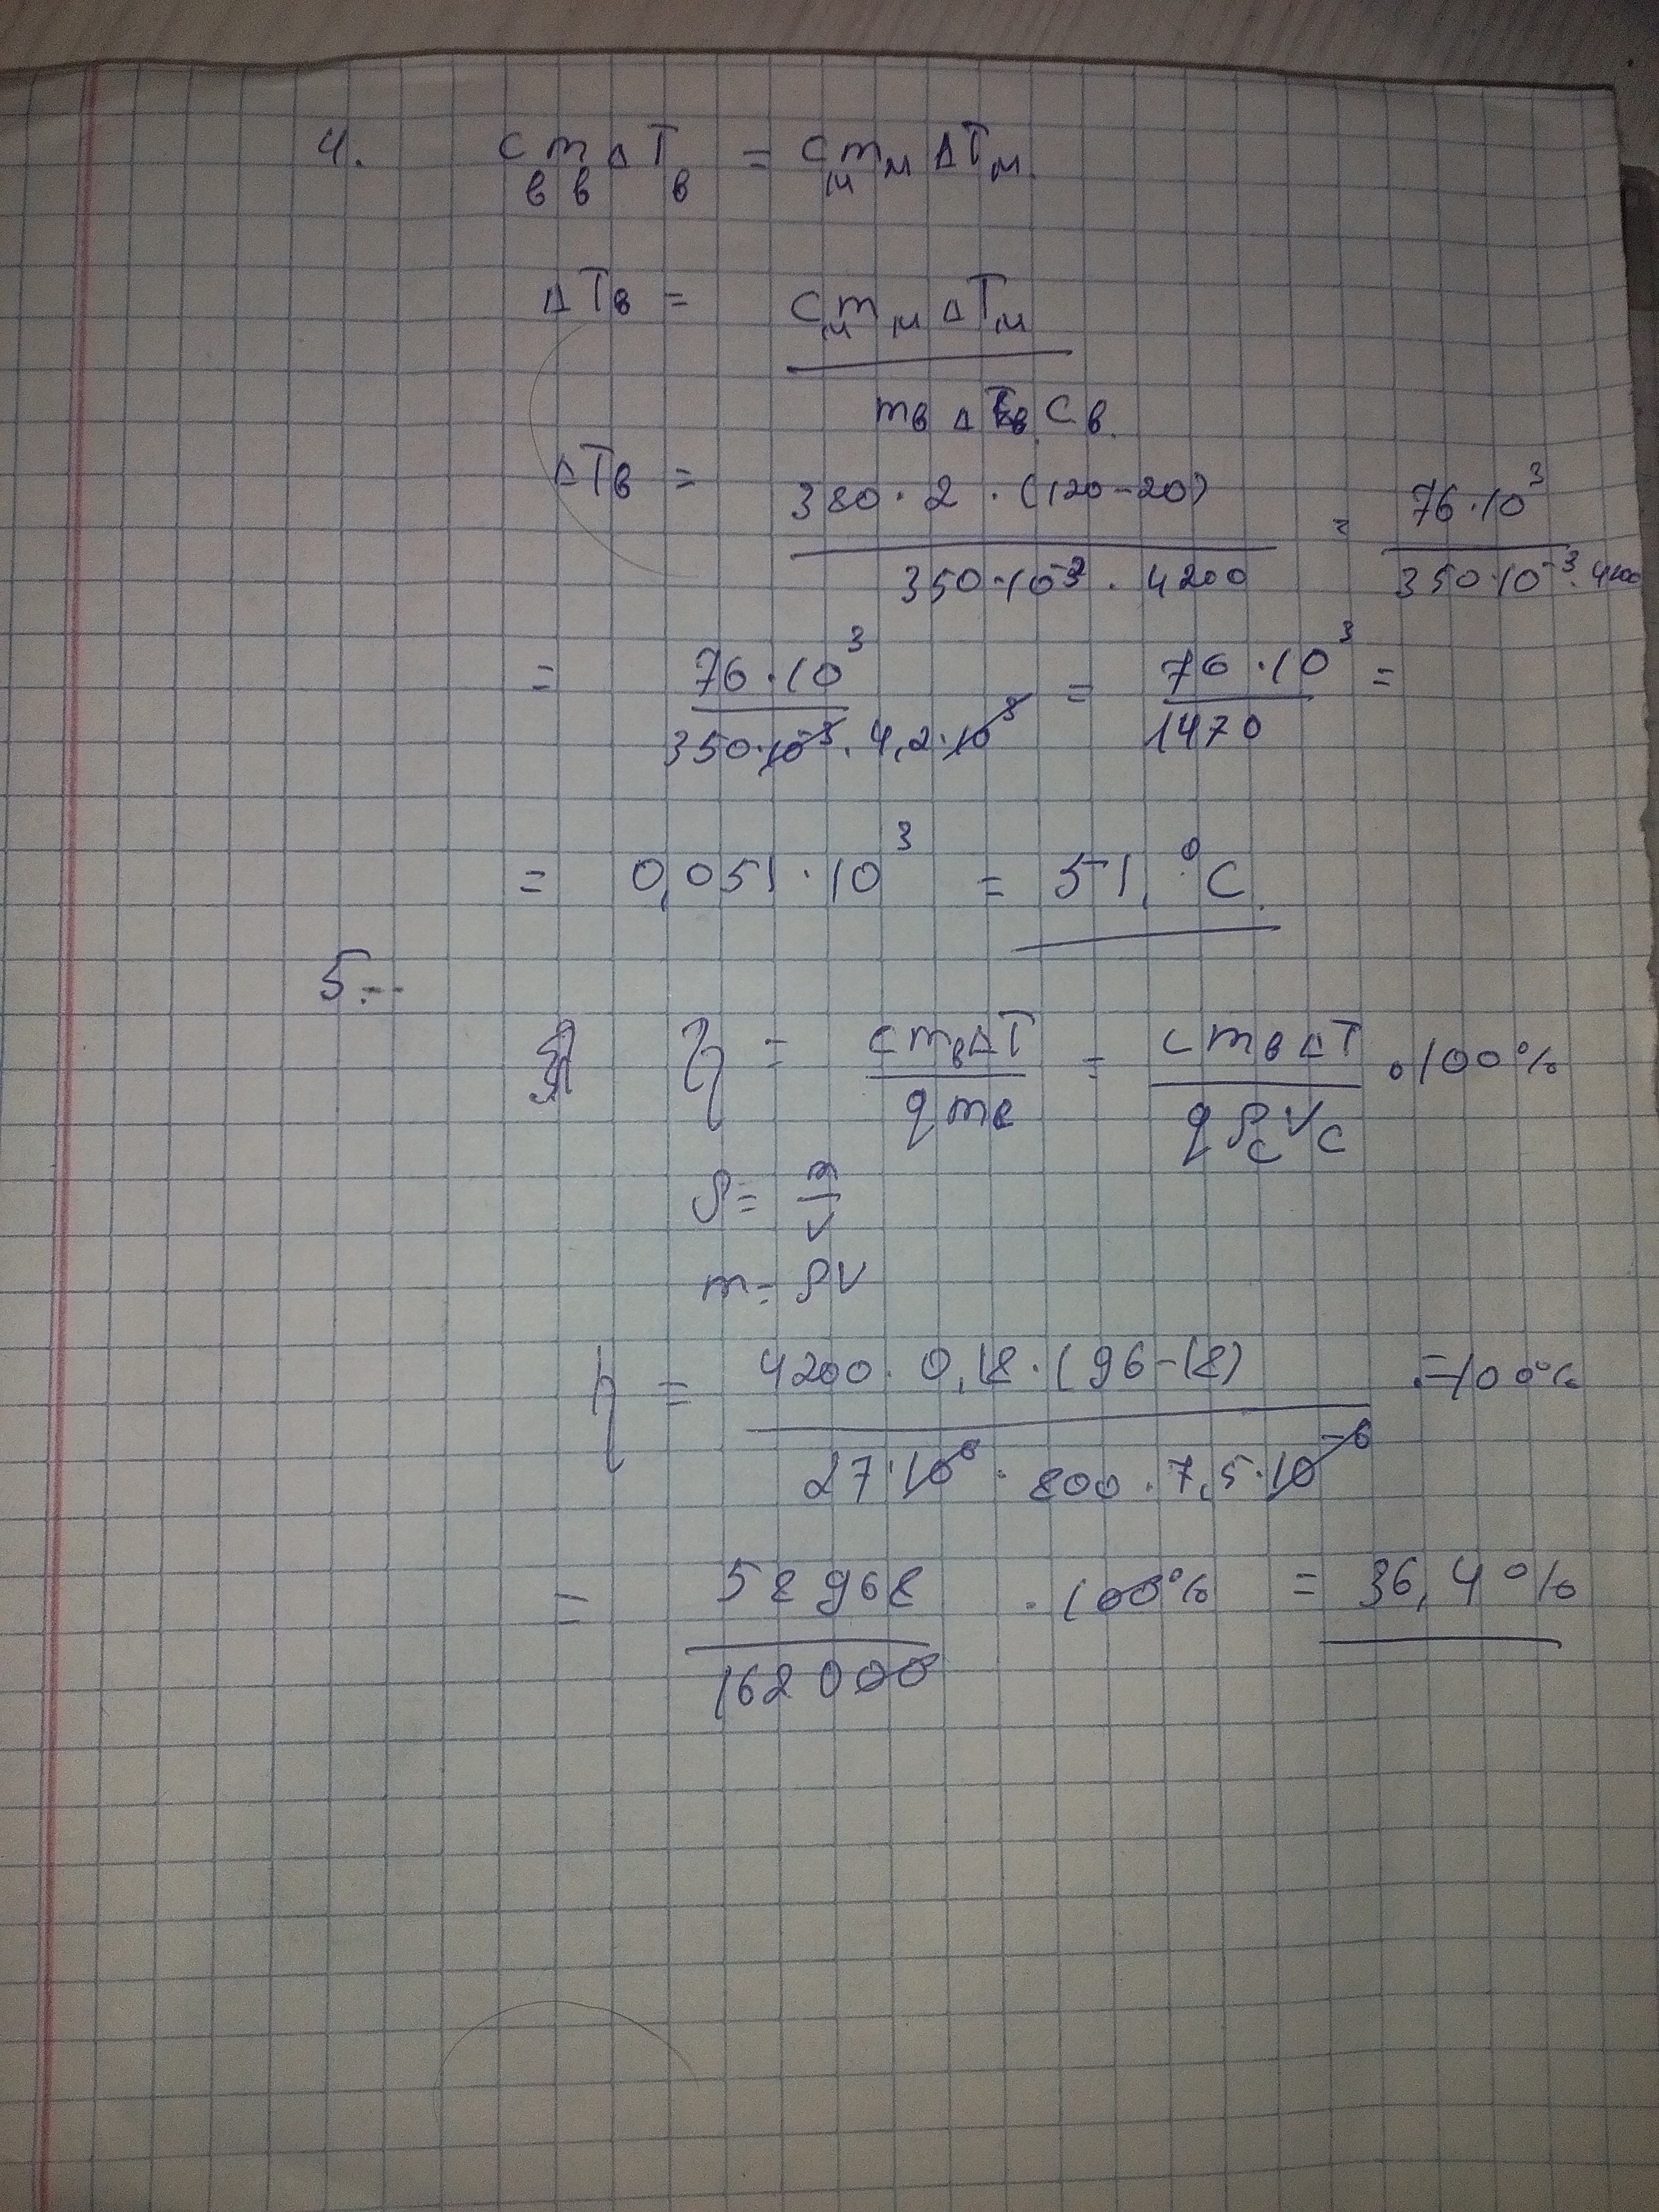 4. cвmвΔTв = cмmмΔTм.
ΔTв = cмmмΔTм
mв Δ cв.
ΔTв = 380·2·(120-20) / 350·10⁻³·4200 = 76·10³ / 350·10⁻³·4200
= 76·10³ / 350·10⁻³·4,2·10³ = 76·10³ / 1470 =
= 0,051·10³ = 51, °C.
5.--
η = cmвΔT / qmc = cmвΔT / qρcVc ·100%
ρ = m / V
m = ρV
η = 4200·0,18·(96-18) / 27·10⁶·800·7,5·10⁻⁶ ·=100%
= 58968 / 162000 ·100% = 36,4%